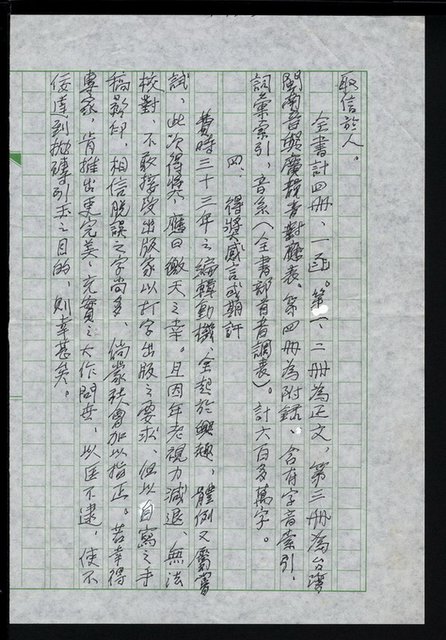 取信於人。
全書計四册、一函。第一、二册為正文,第三册為台灣
閩南音與廣韻音對應表。第四册為附録、含有字音索引、
詞彙索引,音系(全書部首音調表)。計六百多萬字。
四、得獎感言或期許
費時三十三年之編轉動機、全起於興趣,體例又屬嘗
試,此次得獎,應曰邀天之幸。且因年老視力減退、無法
校對、不敢接受出版家以打字出版之要求、但以自寫之手
稿影印、相信脱誤之字尚多、倘蒙教會加以指正。若幸得
專家、肯推出更完美、充實之大作問世、以匡不逮,使不
佞達到拋磚引玉之目的、則幸甚矣。